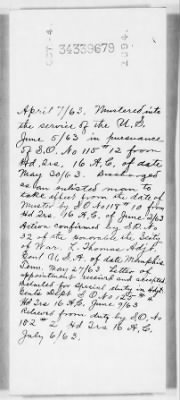 34339679
April 7/63. Mustered into
the service of the U.S.
June 5/63 in pursuance
of S.O. No 115 #12 from
Hd. Qrs. 16 A.C. of date
May 30/63. Discharged
as an enlisted man to
take effect from the date of
Muster by S.O. No 119 #4 from
Hd Qrs. 16 A.C. of June 2/63
Action confirmed by S.O. No
32 of the honorable the Secty
of War. L. Thomas Adjt
Genl U.S.A. of date Memphis
Tenn. May 27/63 Letter of
appointment received and accepted
Detailed for Special duty in Adjt
Genls Dept S.O. No 125 #2
Hd Qrs 16 A.C. June 9/63
Relieved from duty by S.O. No
102 #2 Hd Qrs 16 A.C.
July 6/63.